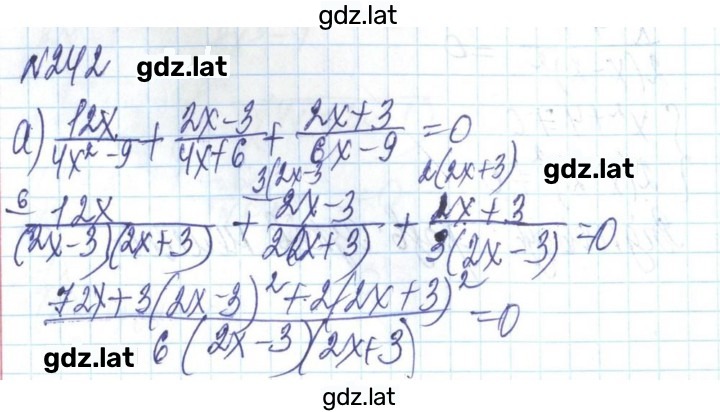 gdz.lat
№242 gdz.lat
а) 12x/(4x² - 9) + (2x - 3)/(4x + 6) + (2x + 3)/(6x - 9) = 0
6 3(2x-3 2(2x+3) gdz.lat
12x/((2x-3)(2x+3)) + (2x-3)/(2(2x+3)) + (2x+3)/(3(2x-3)) = 0
(72x + 3(2x-3)² + 2(2x+3)²)/(6(2x-3)(2x+3)) = 0
gdz.lat
gdz.lat